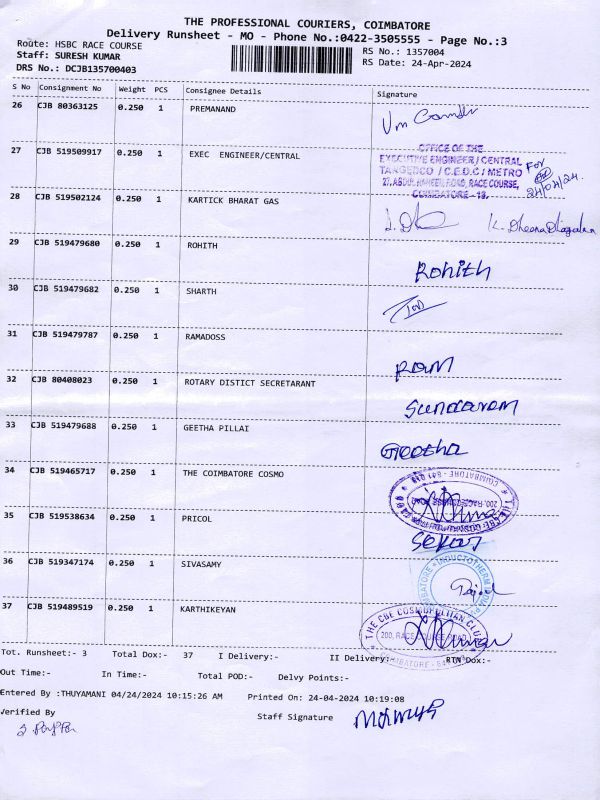 THE PROFESSIONAL COURIERS, COIMBATORE
Delivery Runsheet - MO - Phone No.:0422-3505555 - Page No.:3
Route: HSBC RACE COURSE
Staff: SURESH KUMAR
DRS No.: DCJB135700403
RS No.: 1357004
RS Date: 24-Apr-2024
S No Consignment No Weight PCS Consignee Details Signature
26 CJB 80363125 0.250 1 PREMANAND
27 CJB 519509917 0.250 1 EXEC ENGINEER/CENTRAL
OFFICE OF THE
EXECUTIVE ENGINEER / CENTRAL
TANGEDCO / C.E.D.C / METRO
27, ABDUL RAHEEM ROAD, RACE COURSE,
COIMBATORE - 18.
For
24/04/24.
28 CJB 519502124 0.250 1 KARTICK BHARAT GAS
29 CJB 519479680 0.250 1 ROHITH
Rohith
30 CJB 519479682 0.250 1 SHARTH
31 CJB 519479787 0.250 1 RAMADOSS
Ram
32 CJB 80408023 0.250 1 ROTARY DISTICT SECRETARANT
Sundaram
33 CJB 519479688 0.250 1 GEETHA PILLAI
Geetha
34 CJB 519465717 0.250 1 THE COIMBATORE COSMO
35 CJB 519538634 0.250 1 PRICOL
Sekar
36 CJB 519347174 0.250 1 SIVASAMY
INDUCTOTHERM
37 CJB 519489519 0.250 1 KARTHIKEYAN
THE CBE COSMOPOLITAN CLUB
200, RACE COURSE ROAD
COIMBATORE - 641 018
Tot. Runsheet:- 3 Total Dox:- 37 I Delivery:- II Delivery:- RTN Dox:-
Out Time:- In Time:- Total POD:- Delvy Points:-
Entered By :THUYAMANI 04/24/2024 10:15:26 AM Printed On: 24-04-2024 10:19:08
Verified By Staff Signature